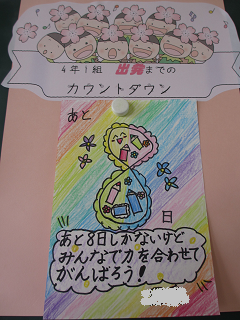 4年1組 出発までの
カウントダウン
あと
8
日
あと8日しかないけど
みんなで力を合わせて
がんばろう!